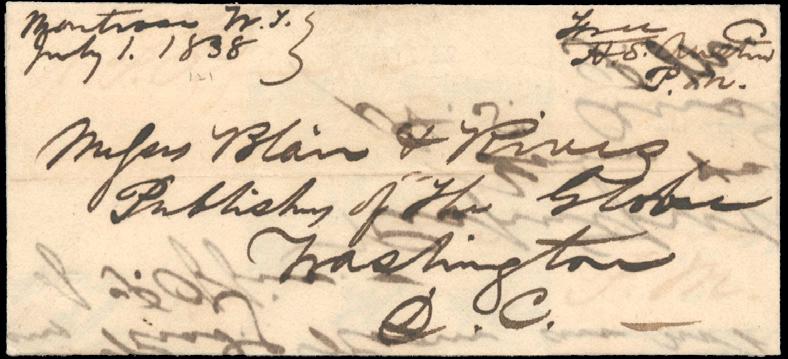 Montrose W.T.
July 1. 1838
Free
H. S. Austin
P. M.
Messrs Blair & Rives
Publishers of "The Globe
Washington
D. C.